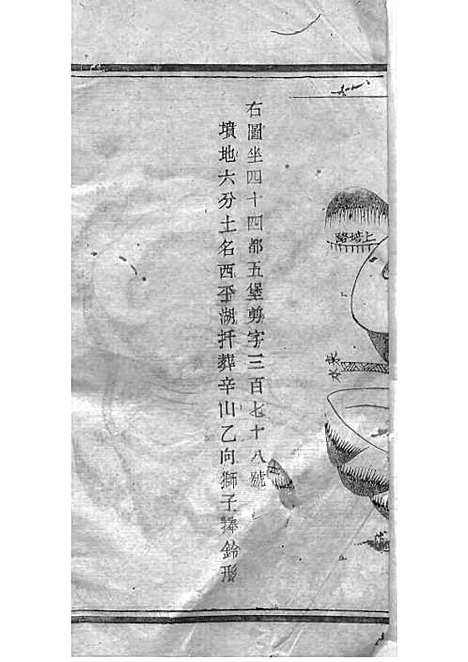 上培路
來水
右圖坐四十四都五堡剪字三百七十八號
墳地六分土名西平湖扦葬辛山乙向獅子捧鈴形